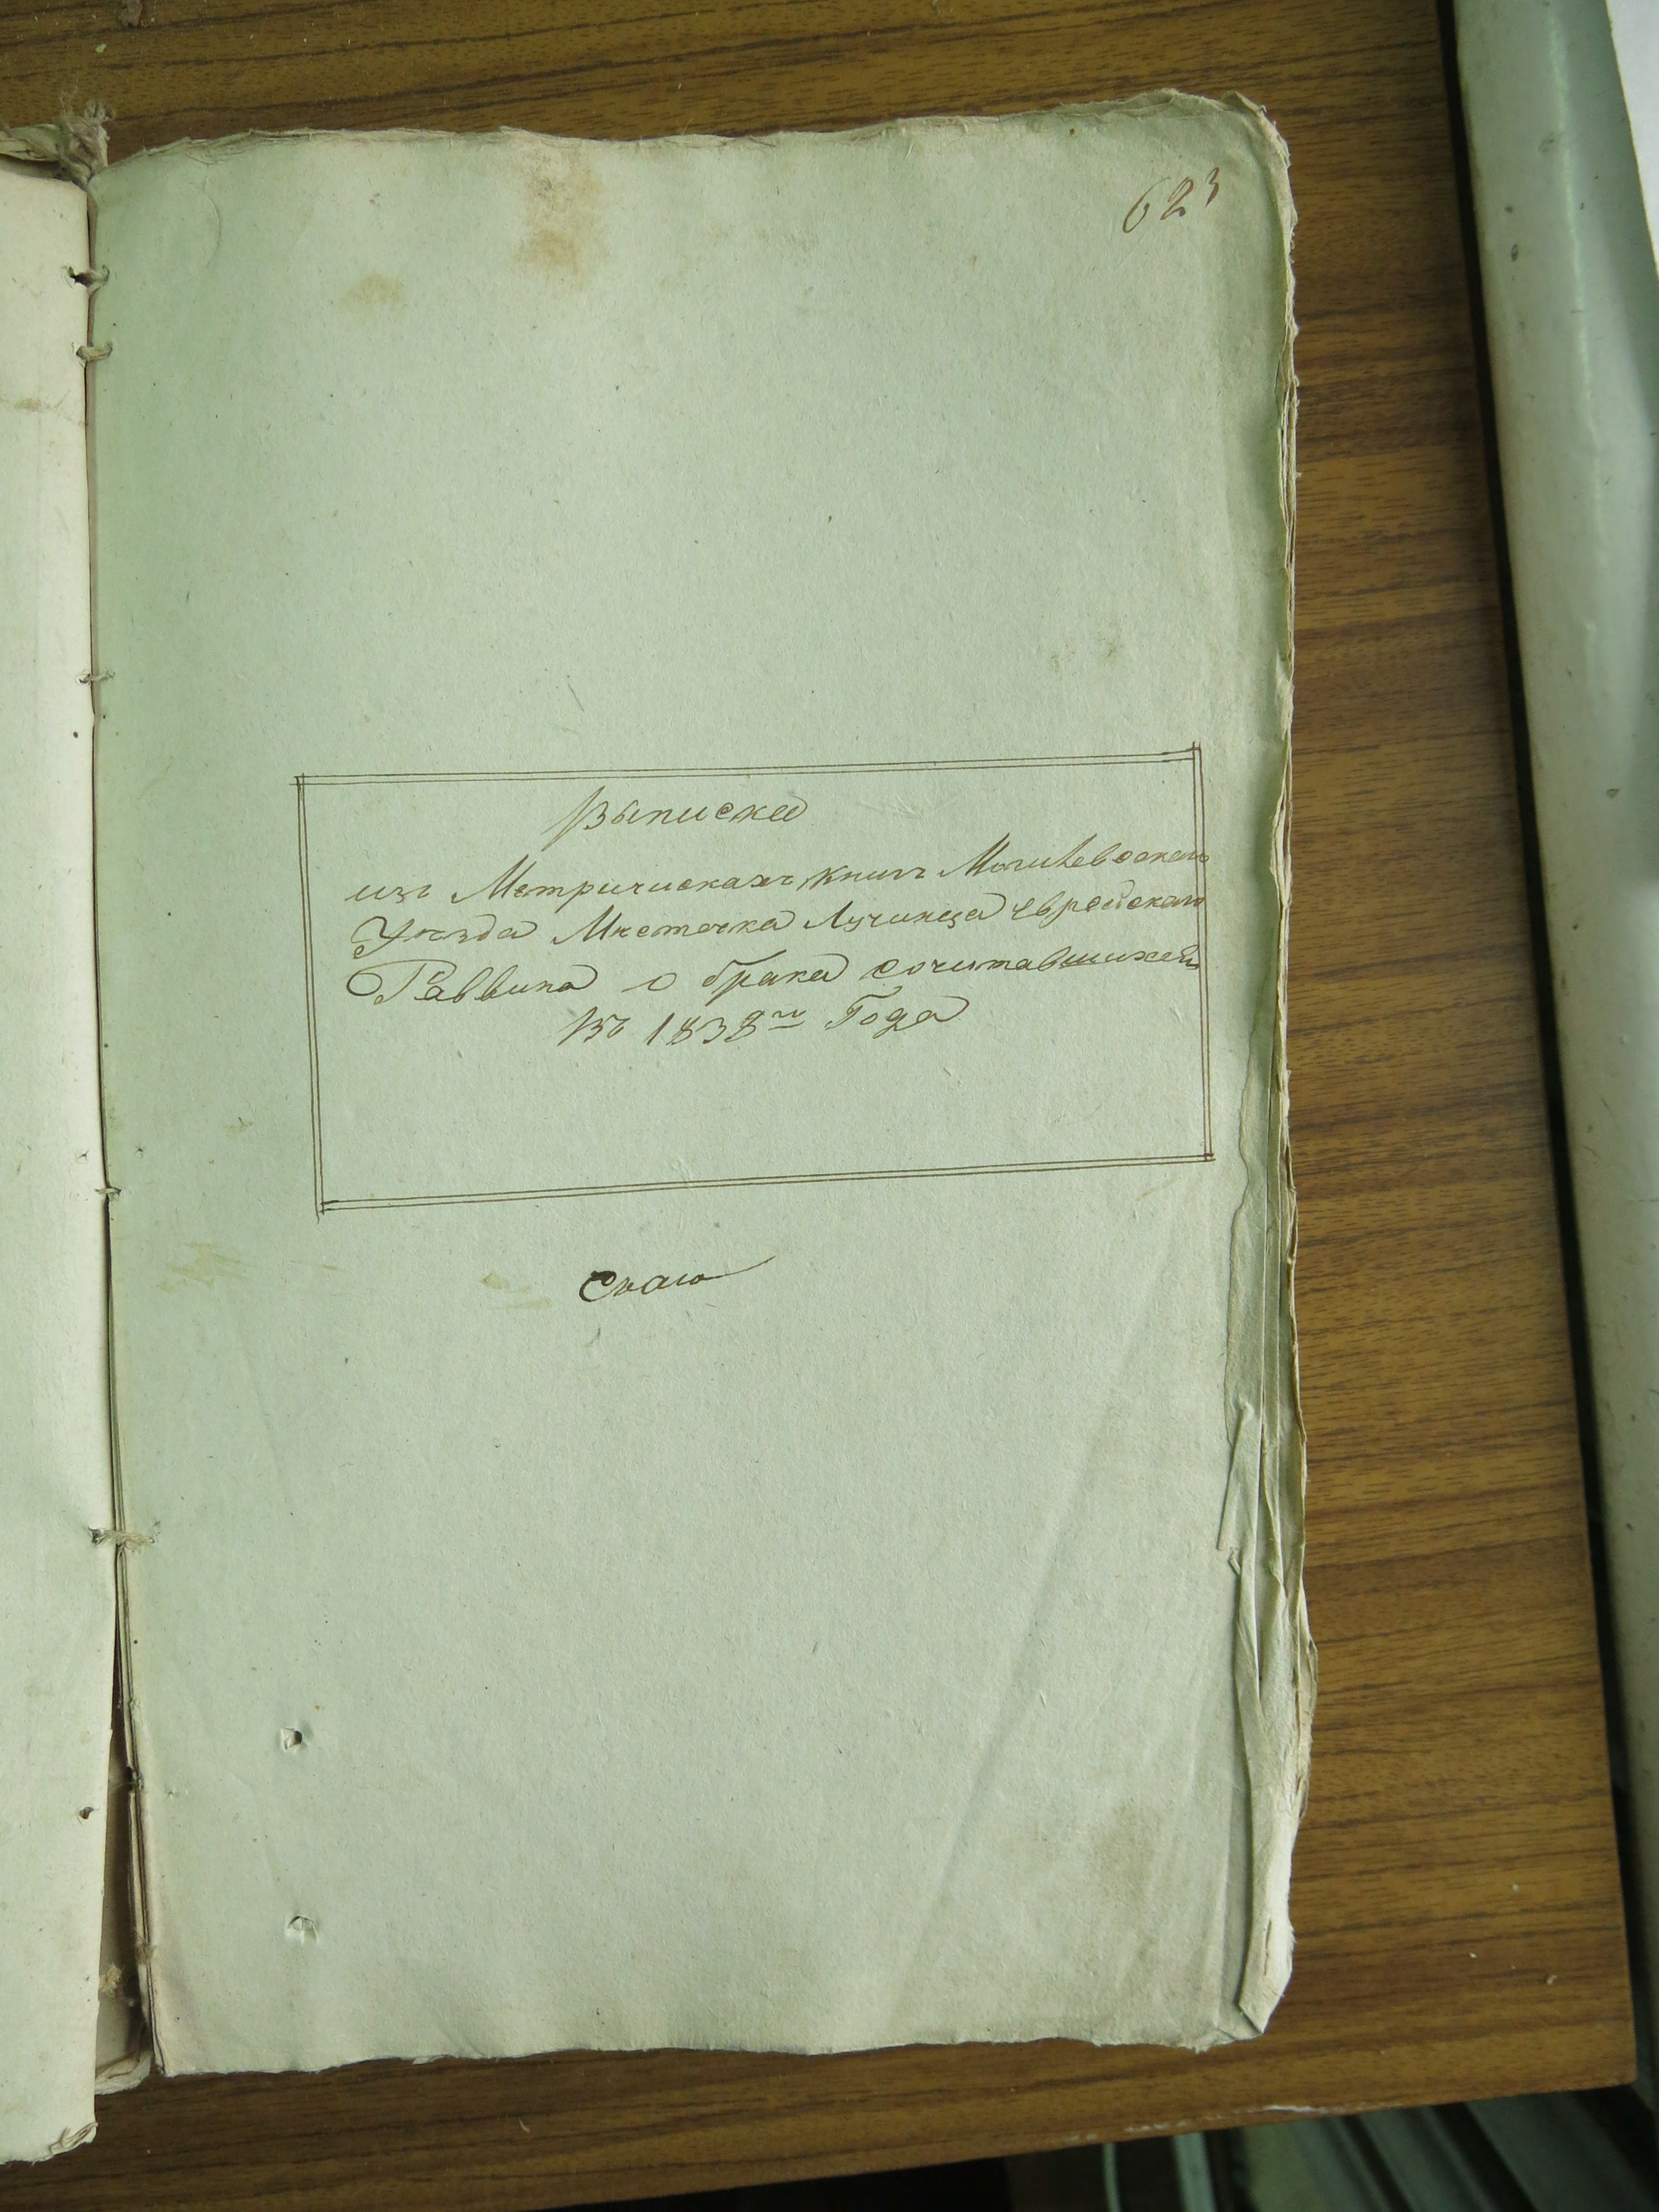 623
Выписка
изъ Метрическахъ книгъ Могилевскаго
Уѣзда Мѣстечка Лучинца еврейскаго
Раввина о брака сочитавшихся
Въ 1838го Года